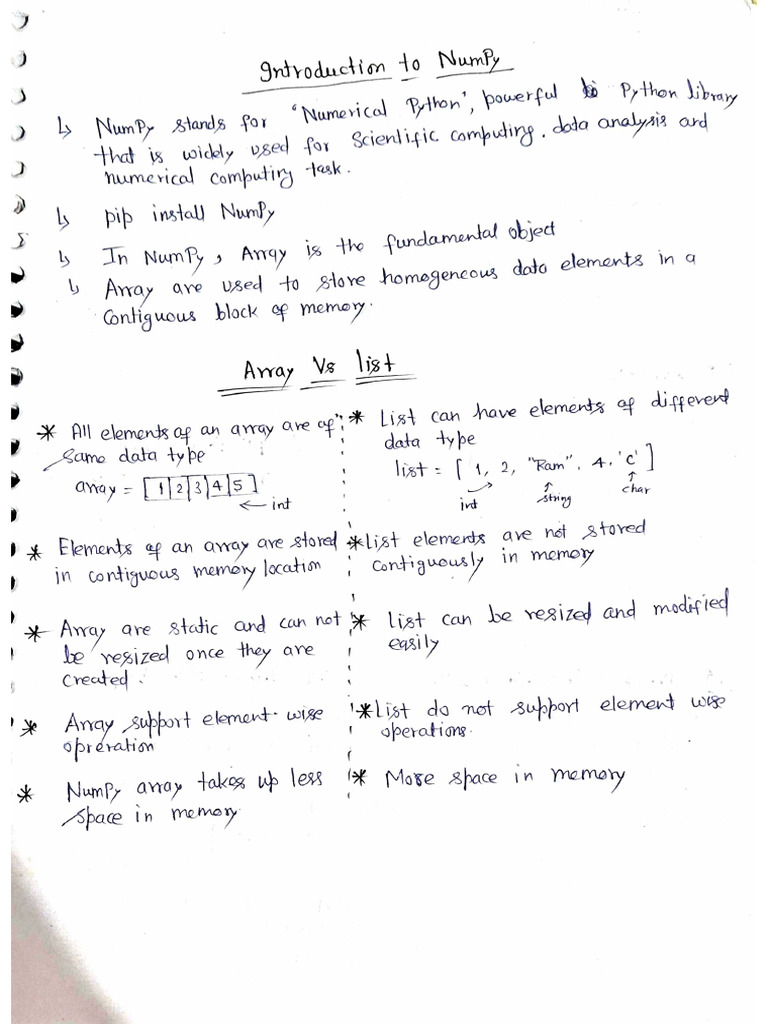 Introduction to NumPy
↳ NumPy stands for "Numerical Python", powerful Python library
that is widely used for Scientific computing, data analysis and
numerical computing task.
↳ pip install NumPy
↳ In NumPy, Array is the fundamental object
↳ Array are used to store homogeneous data elements in a
Contiguous block of memory.
Array Vs list
* All elements of an array are of
same data type
array = [1|2|3|4|5]
← int
* List can have elements of different
data type
list = [ 1, 2, "Ram", 4, 'c' ]
int string char
* Elements of an array are stored
in contiguous memory location
* list elements are not stored
contiguously in memory
* Array are static and can not
be resized once they are
created.
* List can be resized and modified
easily
* Array support element-wise
opreration
* list do not support element wise
operations.
* NumPy array takes up less
space in memory
* More space in memory